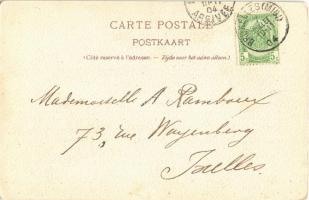 CARTE POSTALE
POSTKAART
(Côté réservé à l'adresse. — Zijde voor het adres alleen.)
04
5 5
Mademoiselle A Ramboux
73, rue Wayenberg
Ixelles.